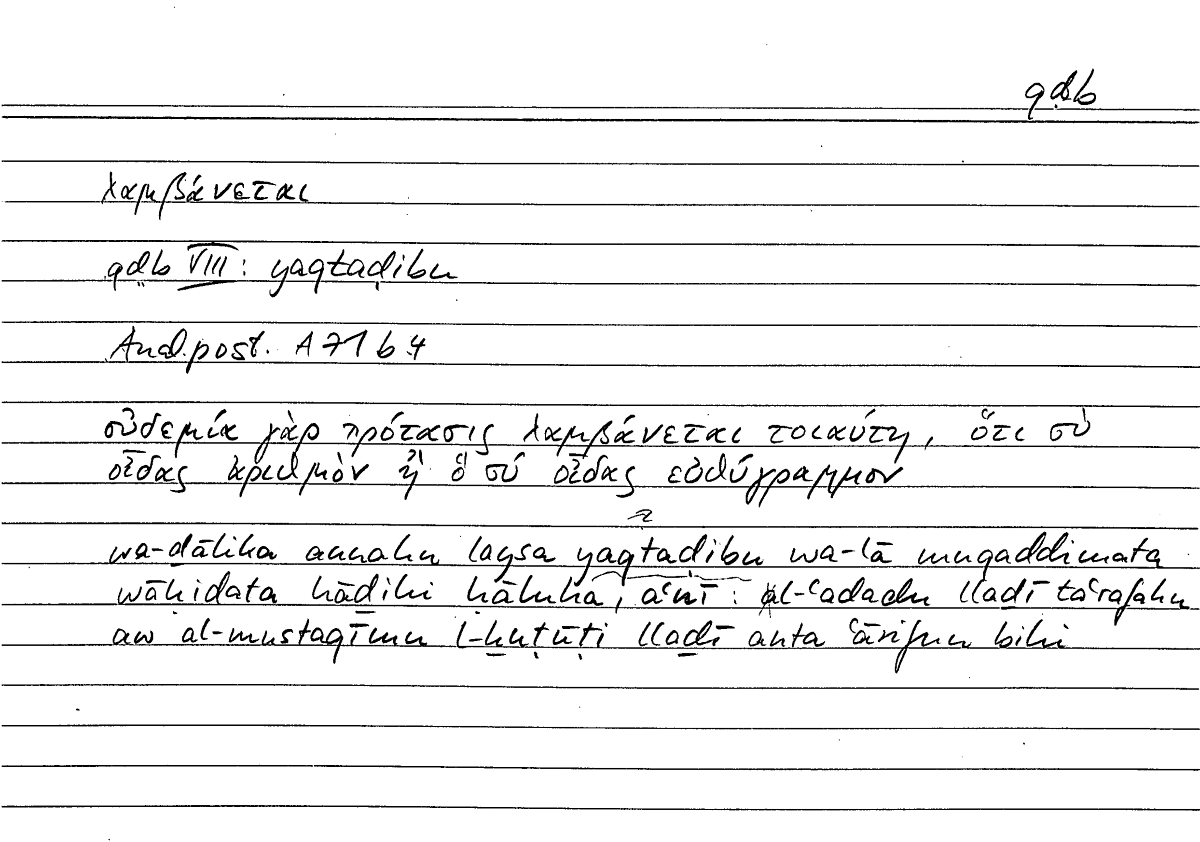 qḍb
λαμβάνεται
qḍb VIII: yaqtaḍibu
Anal.post. A 71 b 4
οὐδεμία γὰρ πρότασις λαμβάνεται τοιαύτη, ὅτι σὺ
οἶδας ἀριθμὸν ἢ ὃ σύ οἶδας εὐθύγραμμον
wa-ḏālika annahu laysa yaqtaḍibu wa-lā muqaddimata
wāḥidata hāḏihi ḥāluha, aʿnī: al-ʿadadu llaḏī taʿrafahu
aw al-mustaqīmu l-ḫuṭūṭi llaḏī anta ʿārifun bihi